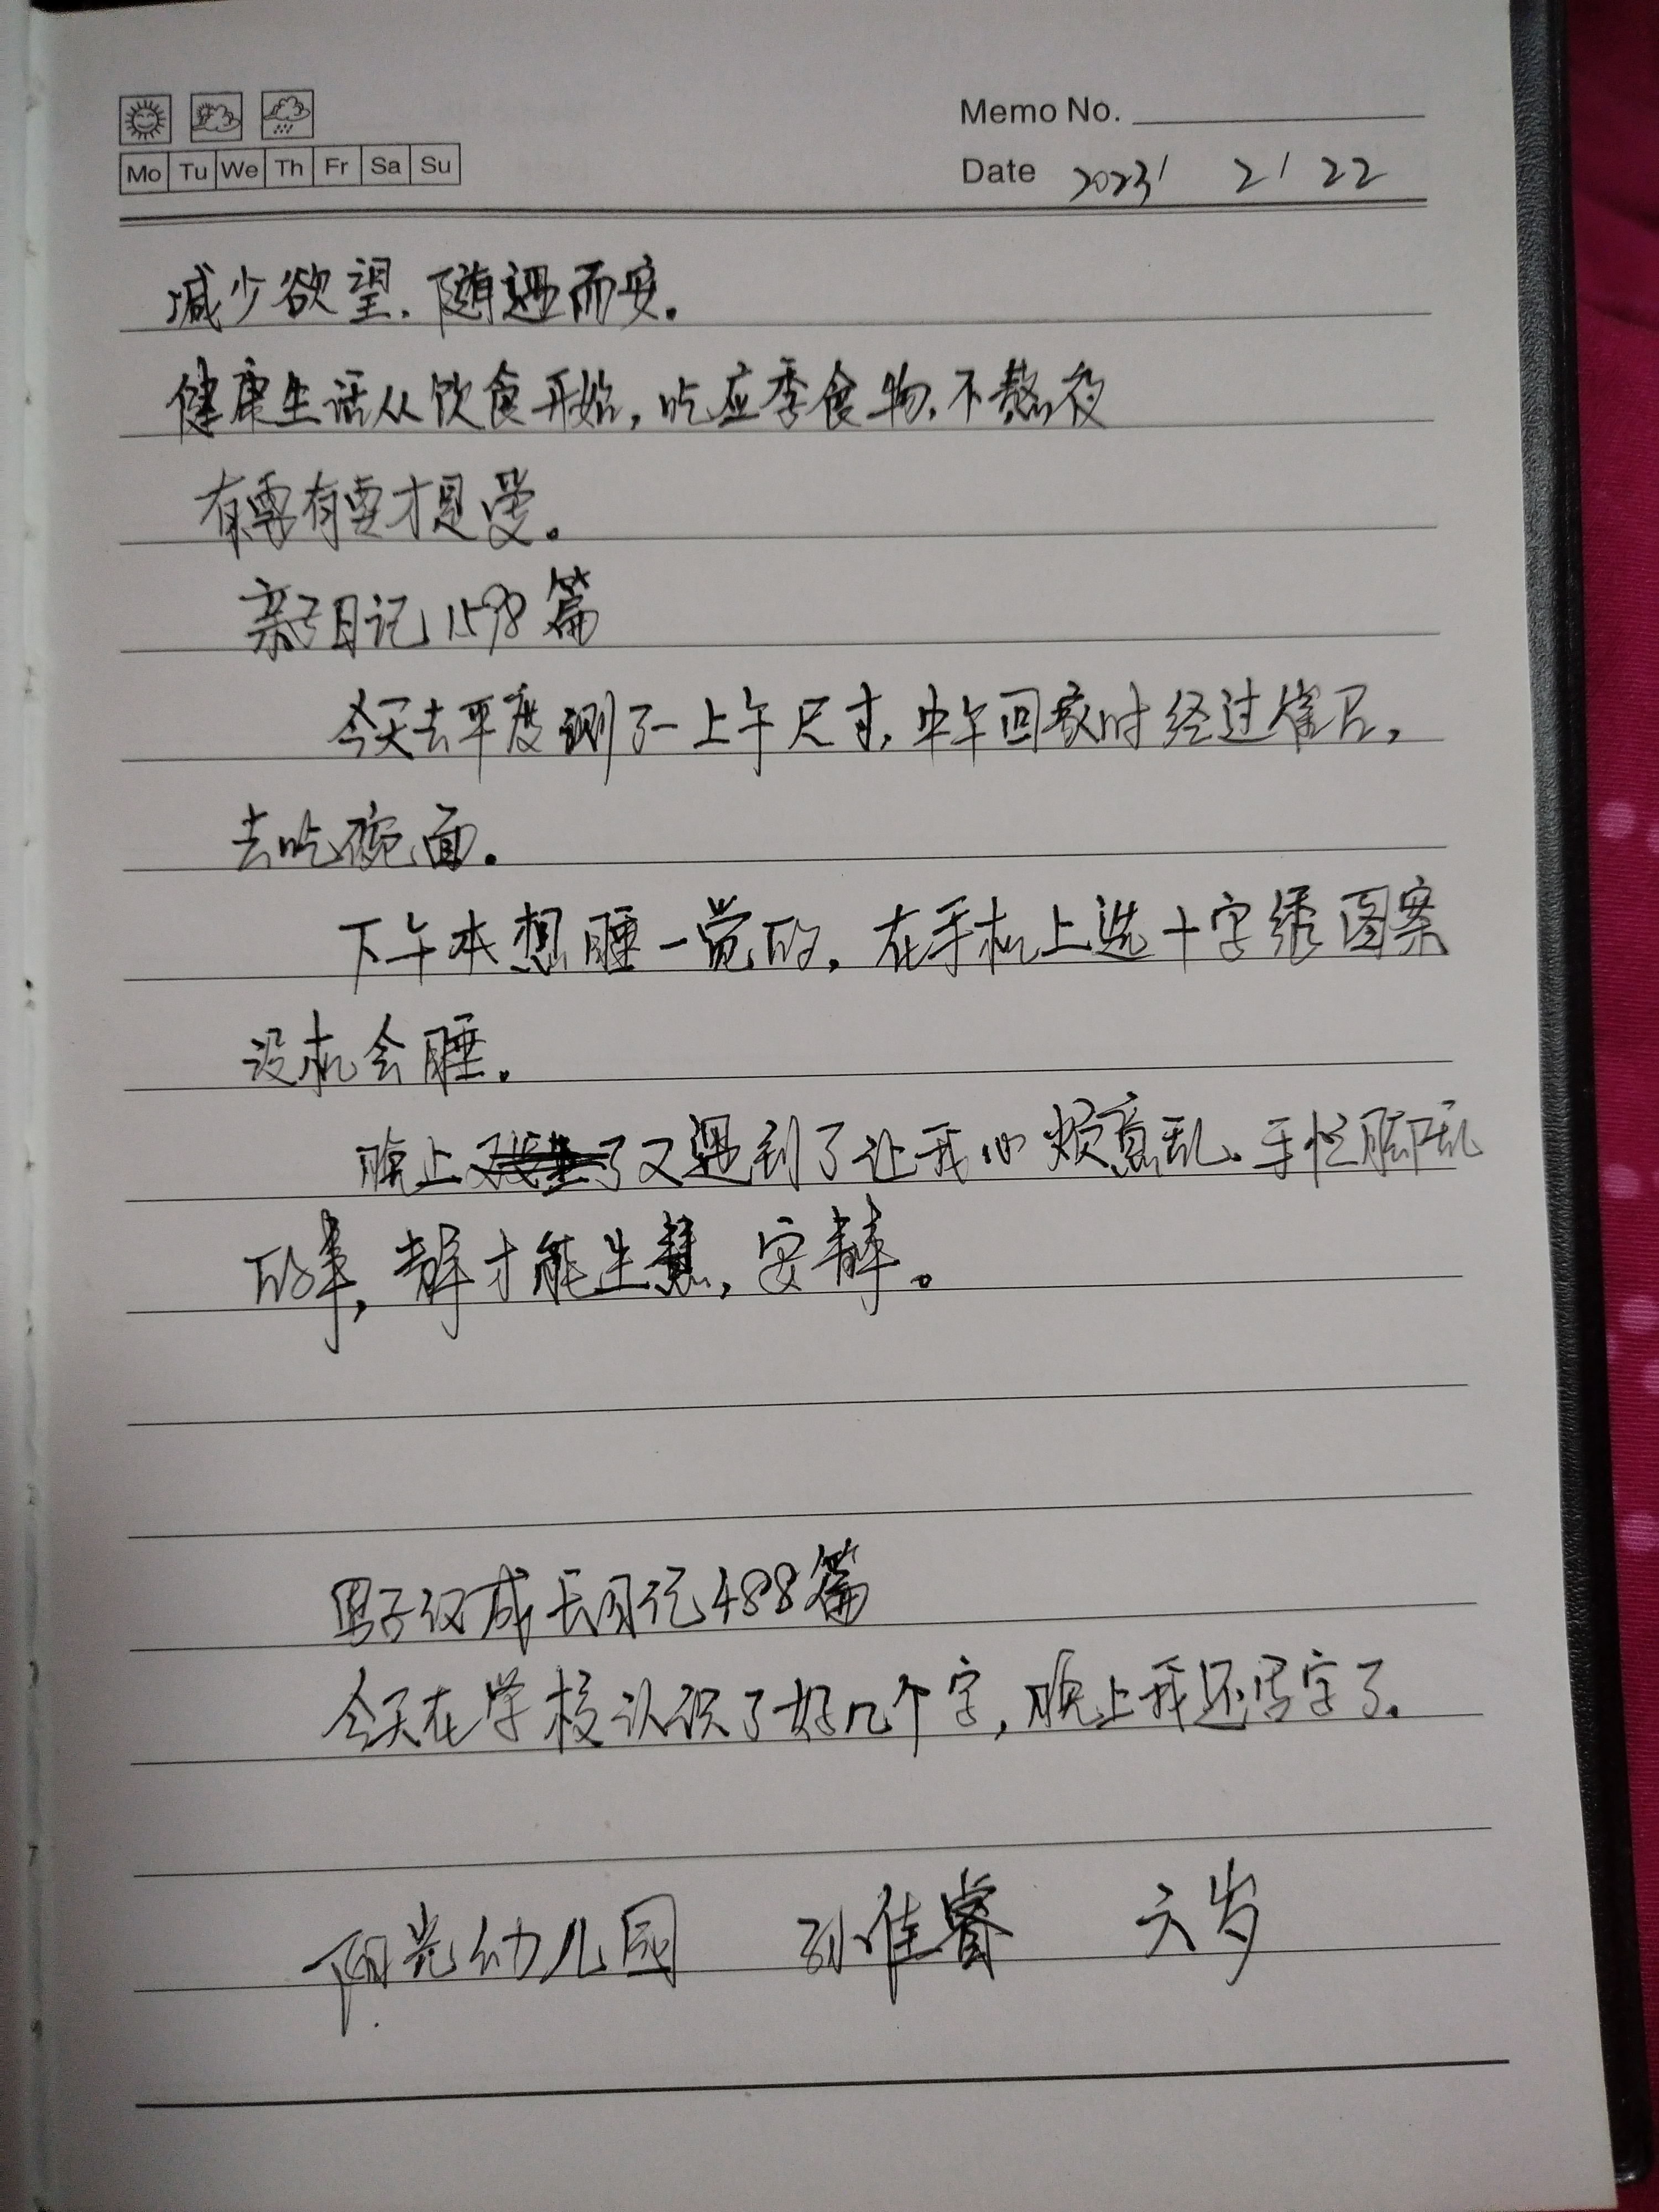 Memo No.
Mo Tu We Th Fr Sa Su
Date 2023/ 2/ 22
减少欲望.随遇而安。
健康生活从饮食开始,吃应季食物,不熬夜
有需有要才是爱。
亲子日记1598篇
今天去平度测了一上午尺寸,中午回家时经过崔召,
去吃碗面。
下午本想睡一觉的,在手机上选十字绣图案
没机会睡。
晚上了又遇到了让我心烦意乱、手忙脚乱
的事,静才能生慧,安静。
男子汉成长日记488篇
今天在学校认识了好几个字,晚上我还写字了.
阳光幼儿园 孙佳睿 六岁